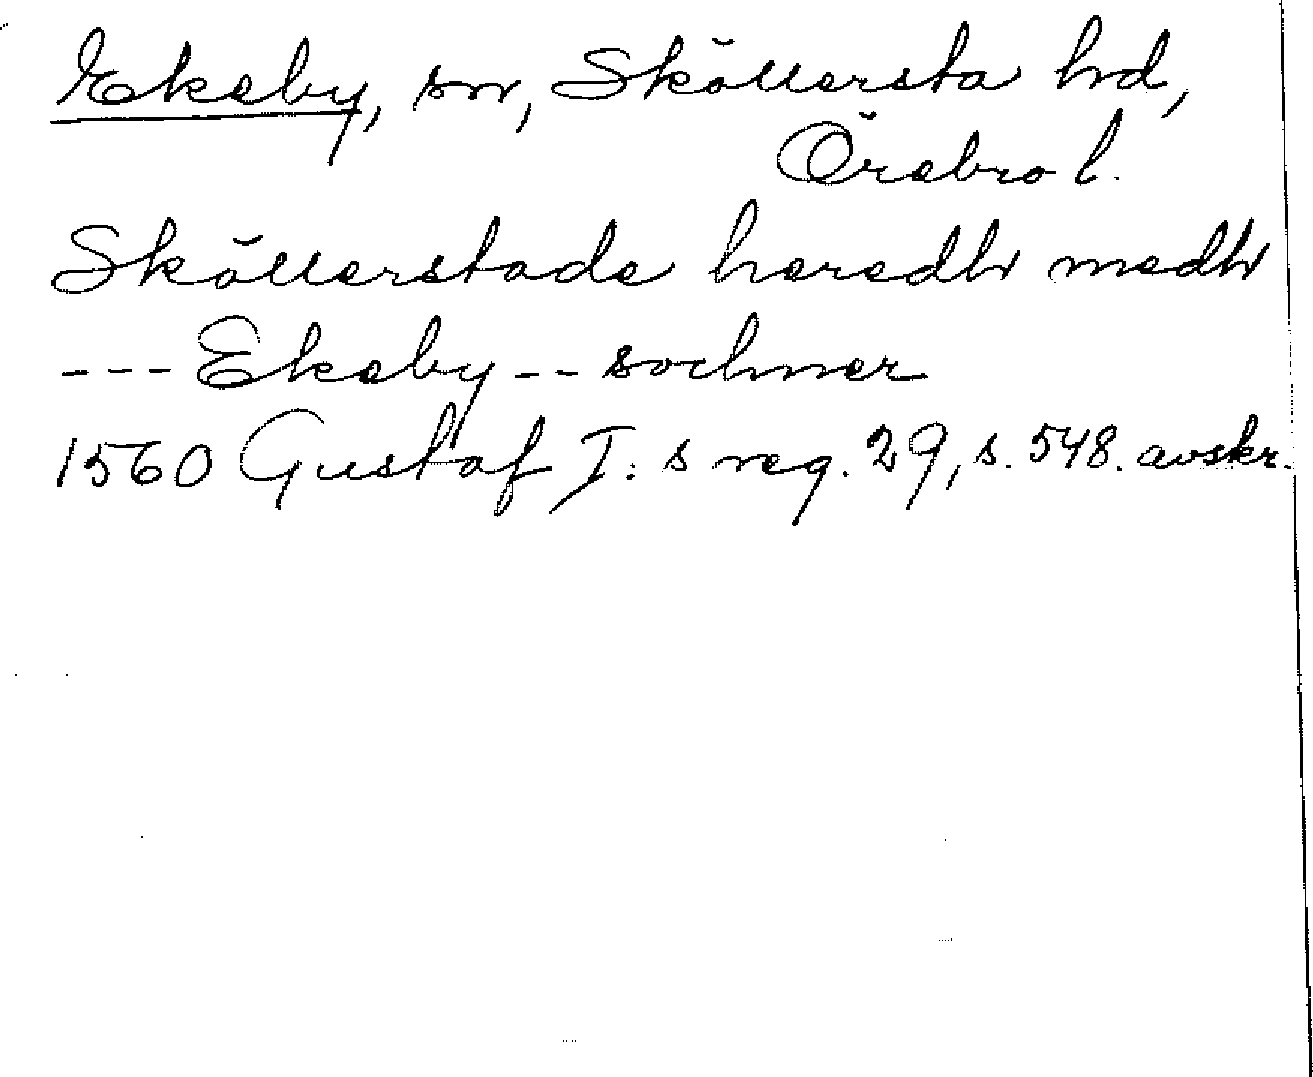 Ekeby, sn, Sköllersta hd,
Örebro l.
Sköllerstade heredh medh
--- Ekeby -- sochner
1560 Gustaf I: s reg. 29, s. 548. avskr.